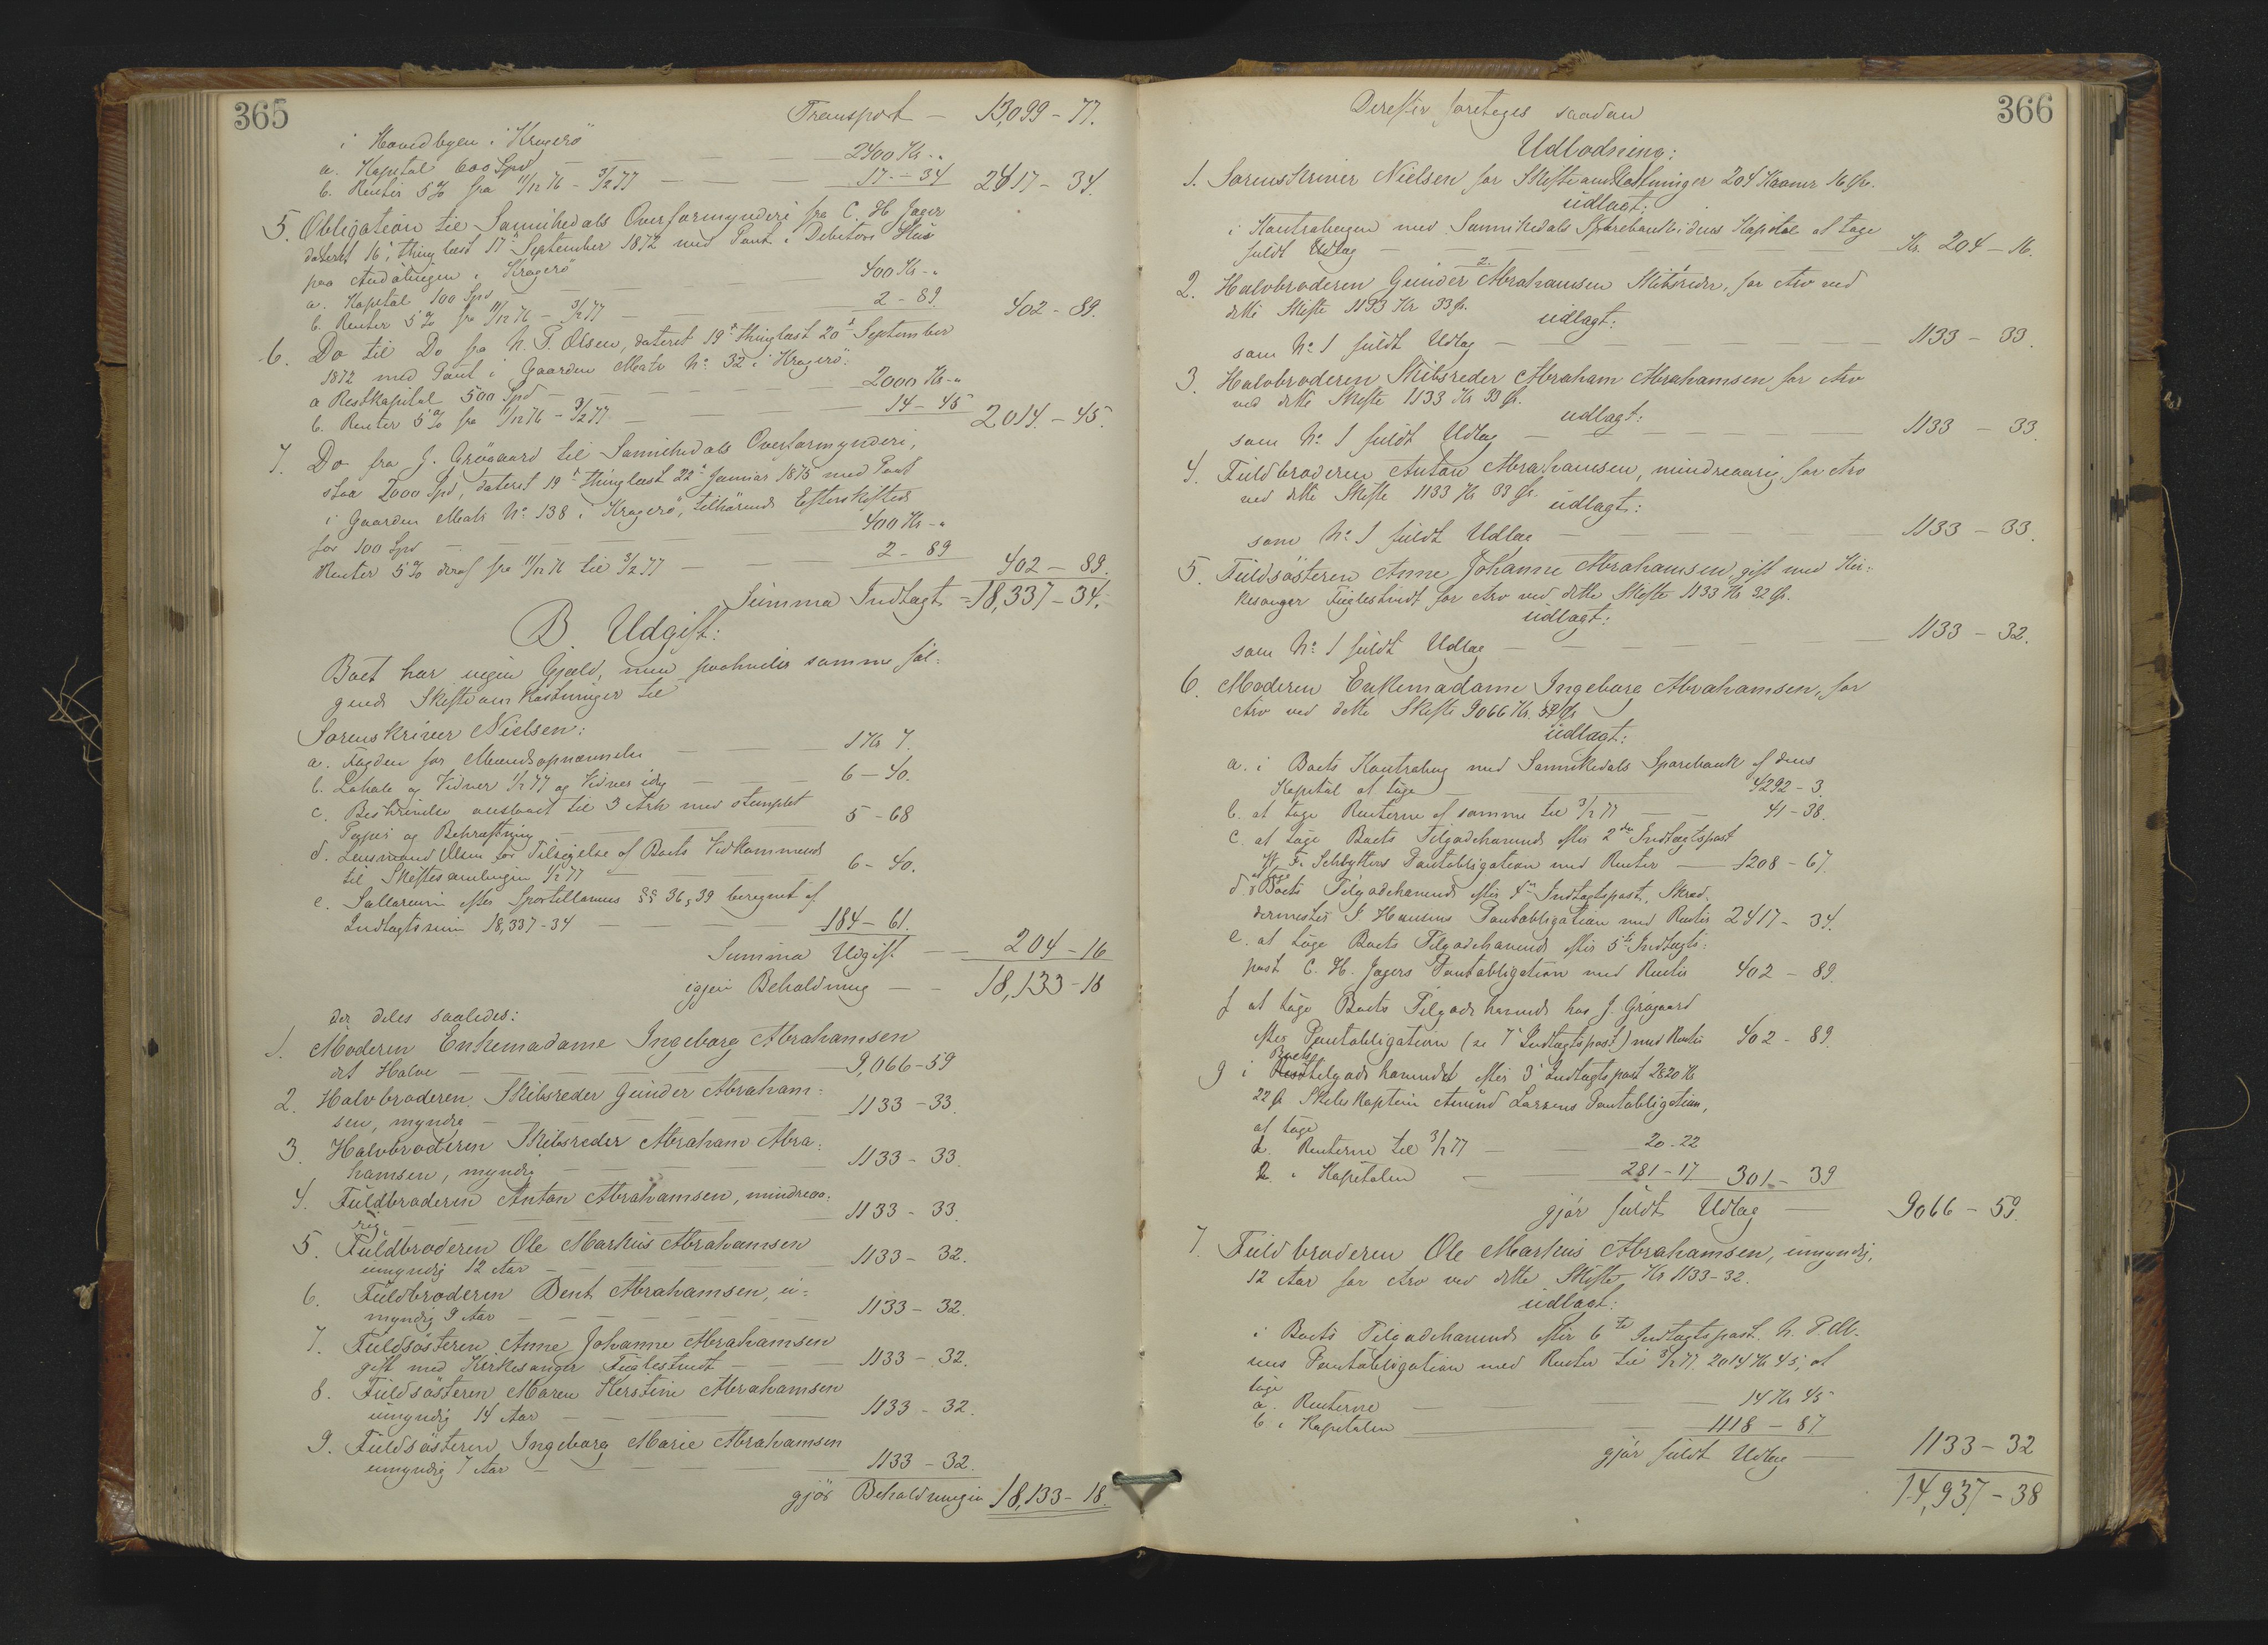 365
Transport - 13,099 - 77.
i Hovedbyen i Kragerö
a. Kapital 600 Spd - 2400 Kr - "
b. Renter 5 % fra 11/12 76 - 3/2 77 - 17 - 34 2417 - 34.
5. Obligation til Sannikedals Overformynderi fra C. H. Jager
dateret 16', thinglæst 17' September 1872 med Pant i Debitors Hus
paa Andölingen i Kragerö
a. Kapital 100 Spd - 400 Kr - "
b. Renter 5 % fra 11/12 76 - 3/2 77 - 2 - 89. 402 - 89.
6. Do til Do fra N. P. Olsen, dateret 19' thinglæst 20' September
1872 med Pant i Gaarden Matr No 32 i Kragerö:
a Restkapital 500 Spd - 2000 Kr - "
b. Renter 5 % fra 11/12 76 - 3/2 77 - 14 - 45 2014 - 45.
7. Do fra J. Grögaard til Sannikedals Overformynderi,
stor 2000 Spd, dateret 19' thinglæst 22' Januar 1875 med Pant
i Gaarden Matr No 138 i Kragerö, tilhörende Efterskiftede
for 100 Spd - 400 Kr - "
Renter 5 % deraf fra 11/12 76 til 3/2 77 - 2 - 89 402 - 89.
Summa Indtægt = 18,337 - 34.
B. Udgift:
Boet har ingen Gjæld, men paahviler samme föl-
gende Skifteomkostninger til
Sorenskriver Nielsen:
a. Fogden for Mændsopnævnelse - 1 Kr 7.
b. Lokale og Vidner 1/2 77 og Vidner idag - 6 - 40.
c. Beskrivelse anslaaet til 3 Ark med stemplet
Papir og Bekræftning - 5 - 68
d. Lensmand Olsen for Tilsigelse af Boets Vedkommende
til Skiftesamlingen 1/2 77 - 6 - 40.
e. Sallarium efter Sportellovens §§ 36, 39 beregnet af
Indtægtssum 18,337 - 34 - 184 - 61.
Summa Udgift - 204 - 16
igjen Beholdning - - 18,133 - 18
der deles saaledes:
1. Moderen Enkemadame Ingeborg Abrahamsen
det Halve - 9,066 - 59
2. Halvbroderen Skibsreder Gunder Abraham-
sen, myndig - 1133 - 33.
3. Halvbroderen Skibsreder Abraham Abra-
hamsen, myndig - 1133 - 33.
4. Fuldbroderen Anton Abrahamsen, mindreaa-
rig - 1133 - 33.
5. Fuldbroderen Ole Markus Abrahamsen
umyndig 12 Aar - 1133 - 32.
6. Fuldbroderen Bent Abrahamsen, u-
myndig 9 Aar - 1133 - 32.
7. Fuldsösteren Anne Johanne Abrahamsen
gift med Kirkesanger Fuglestvedt - 1133 - 32.
8. Fuldsösteren Maren Kerstine Abrahamsen
umyndig 14 Aar - 1133 - 32.
9. Fuldsösteren Ingeborg Marie Abrahamsen
umyndig 7 Aar - 1133 - 32.
gjör Beholdningen 18,133 - 18.
366
Derefter foretoges saadan
Udlodning:
1. Sorenskriver Nielsen for Skifteomkostninger 204 Kroner 16 Ör.
udlagt:
i Kontrabogen med Sannikedals Sparebank i dens Kapital at tage
fuldt Udlæg - Kr. 204 - 16.
2.
2. Halvbroderen Gunder Abrahamsen Skibsreder, for Arv ved
dette Skifte 1133 Kr 33 Ör. udlagt:
som No 1 fuldt Udlæg - 1133 - 33.
3. Halvbroderen Skibsreder Abraham Abrahamsen for Arv
ved dette Skifte 1133 Kr 33 Ör. udlagt:
som No 1 fuldt Udlæg - 1133 - 33.
4. Fuldbroderen Anton Abrahamsen, mindreaarig, for Arv
ved dette Skifte 1133 Kr 33 Ör. udlagt:
som No 1 fuldt Udlæg - 1133 - 33.
5. Fuldsösteren Anne Johanne Abrahamsen gift med Kir-
kesanger Fuglestvedt for Arv ved dette Skifte 1133 Kr 32 Ör.
udlagt:
som No 1 fuldt Udlæg - 1133 - 32.
6. Moderen Enkemadame Ingeborg Abrahamsen, for
Arv ved dette Skifte 9066 Kr. 59 Ör
udlagt:
a. i Boets Kontrabog med Sannikedals Sparebank af dens
Kapital at tage - 4292 - 3.
b. at tage Renterne af samme til 3/2 77 - 41 - 38.
c. at tage Boets Tilgodehavende efter 2den Indtægtspost
F. Schbyttens Pantobligation med Renter - 1208 - 67.
d. Boets Tilgodehavende efter 4de Indtægtspost, Skræd-
dermester J. Hansens Pantobligation med Renter 2417 - 34.
e. at tage Boets Tilgodehavende efter 5te Indtægts-
post C. H. Jagers Pantobligation med Renter 402 - 89.
f at tage Boets Tilgodehavende hos J. Grögaard
efter Pantobligation (se 7' Indtægtspost) med Renter 402 - 89.
g i Boets tilgodehavendet efter 3' Indtægtspost 2820 Kr
22 Ör Skibskaptein Amund Larsens Pantobligation,
at tage
Renterne til 3/2 77 - 20 - 22
i Kapitalen - 281 - 17 301 - 39
gjör fuldt Udlæg - 9066 - 59.
7. Fuldbroderen Ole Markus Abrahamsen, umyndig,
12 Aar for Arv ved dette Skifte Kr 1133 - 32.
udlagt:
i Boets Tilgodehavende efter 6te Indtægtspost. N. P. Ol-
sens Pantobligation med Renter til 3/2 77. 2014 Kr 45, at
tage
a. Renterne - 14 Kr 45
b i Kapitalen - 1118 - 87
gjör fuldt Udlæg - 1133 - 32
14,937 - 38